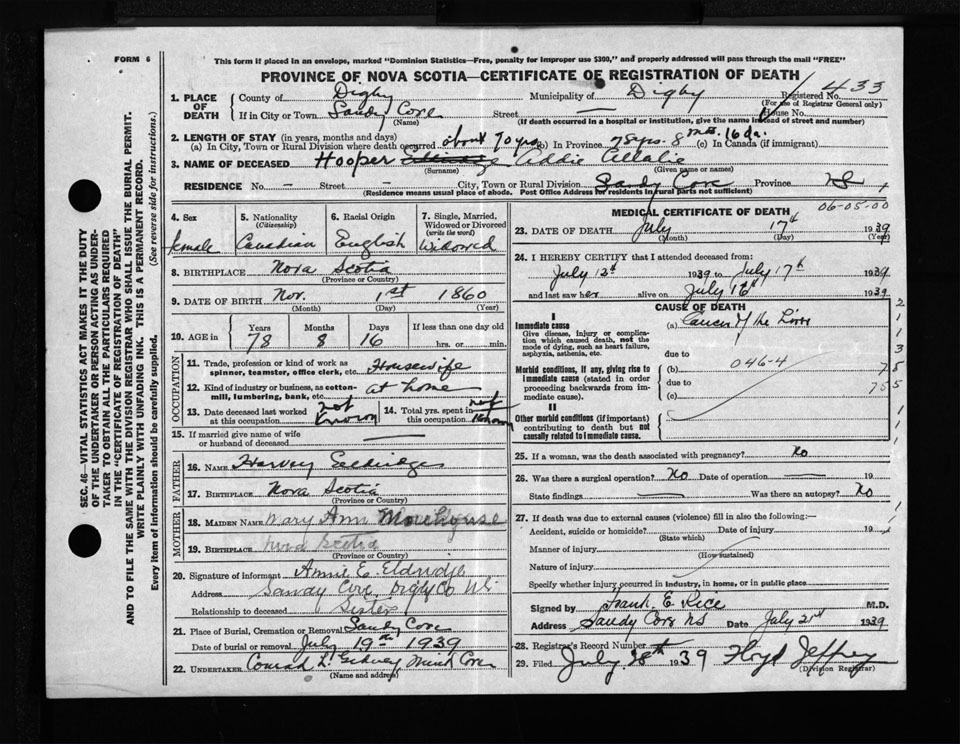 FORM 6
This form if mailed in an envelope, marked "Dominion Statistics—Free, penalty for improper use $300," and properly addressed will pass through the mail "FREE"
PROVINCE OF NOVA SCOTIA—CERTIFICATE OF REGISTRATION OF DEATH
433
1. PLACE OF DEATH County of Digby Municipality of Digby Registered No.
(For use of Registrar General only)
If in City or Town Sandy Cove Street — House No.
(Name) (If death occurred in a hospital or institution, give the name instead of street and number)
2. LENGTH OF STAY (in years, months and days)
(a) In City, Town or Rural Division where death occurred about 70 yrs (b) In Province 78 yrs. 8 mos. 16 da. (c) In Canada (if immigrant)
3. NAME OF DECEASED Hooper Addie Allalie
(Surname) (Given name or names)
RESIDENCE No. — Street — City, Town or Rural Division Sandy Cove Province NS
(Residence means usual place of abode. Post Office Address for residents in rural parts not sufficient)
4. Sex female
5. Nationality (Citizenship) Canadian
6. Racial Origin English
7. Single, Married, Widowed or Divorced (write the word) Widowed
8. BIRTHPLACE Nova Scotia
(Province or Country)
9. DATE OF BIRTH Nov. 1st 1860
(Month) (Day) (Year)
10. AGE in Years Months Days If less than one day old
78 8 16 hrs. or min.
OCCUPATION
11. Trade, profession or kind of work as spinner, teamster, office clerk, etc. Housewife
12. Kind of industry or business, as cotton-mill, lumbering, bank, etc. at home
13. Date deceased last worked at this occupation not known
14. Total yrs. spent in this occupation not known
15. If married give name of wife or husband of deceased —
FATHER
16. NAME Harvey Eldridge
17. BIRTHPLACE Nova Scotia
MOTHER
18. MAIDEN NAME Mary Ann Morehouse
19. BIRTHPLACE Nova Scotia
(Province or Country)
20. Signature of informant Annie E Eldridge
Address Sandy Cove Digby Co NS
Relationship to deceased Sister
21. Place of Burial, Cremation or Removal Sandy Cove
Date of burial or removal July 19th 1939
22. UNDERTAKER Conrad L. Gidney Mink Cove
(Name and address)
MEDICAL CERTIFICATE OF DEATH
06-05-00
23. DATE OF DEATH July 17th 1939
(Month) (Day) (Year)
24. I HEREBY CERTIFY that I attended deceased from:
July 12th 1939 to July 17th 1939
and last saw her alive on July 16th 1939
CAUSE OF DEATH
I
Immediate cause
Give disease, injury or complication which caused death, not the mode of dying, such as heart failure, asphyxia, asthenia, etc.
(a) Cancer of the Liver
due to
046-4
Morbid conditions, if any, giving rise to immediate cause (stated in order proceeding backwards from immediate cause).
(b)
due to
(c)
II
Other morbid conditions (if important) contributing to death but not causally related to immediate cause.
25. If a woman, was the death associated with pregnancy? no
26. Was there a surgical operation? No Date of operation — 19
State findings — Was there an autopsy? No
27. If death was due to external causes (violence) fill in also the following:—
Accident, suicide or homicide? Date of injury 19
(State which)
Manner of injury
(How sustained)
Nature of injury
Specify whether injury occurred in industry, in home, or in public place
Signed by Frank E Rice M.D.
Address Sandy Cove NS Date July 21st 1939
28. Registrar's Record Number
29. Filed July 28th 1939 Floyd Jeffrey
(Division Registrar)
SEC. 46—VITAL STATISTICS ACT MAKES IT THE DUTY
OF THE UNDERTAKER OR PERSON ACTING AS UNDER-
TAKER TO OBTAIN ALL THE PARTICULARS REQUIRED
IN THE "CERTIFICATE OF REGISTRATION OF DEATH"
AND TO FILE THE SAME WITH THE DIVISION REGISTRAR WHO SHALL ISSUE THE BURIAL PERMIT.
WRITE PLAINLY WITH UNFADING INK. THIS IS A PERMANENT RECORD.
Every item of information should be carefully supplied. (See reverse side for instructions.)